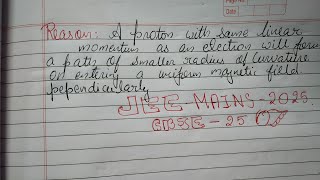 Reason: A proton with same linear
momentum as an electron will form
a path of smaller radius of curvature
on entering a uniform magnetic field
pependicularly
JEE-MAINS-2025
CBSE-25